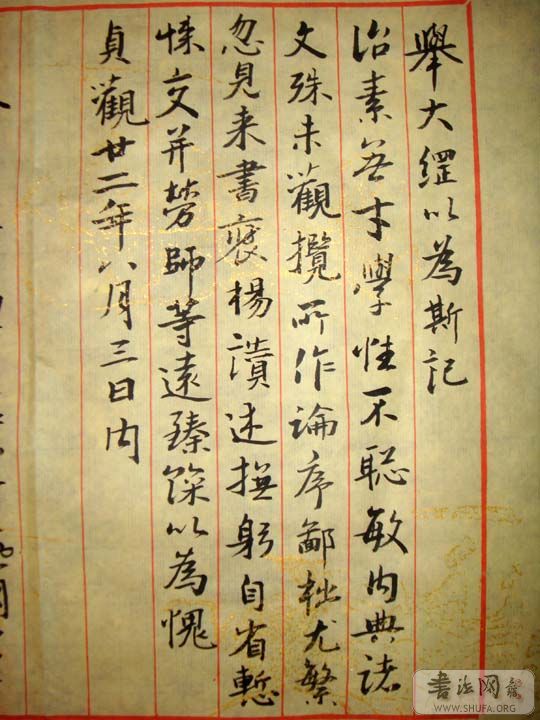 舉大綱以為斯記
治素無才學性不聡敏內典諸
文殊未觀攬所作論序鄙拙尤繁
忽見来書褒楊讃述撫躬自省慙
悚交并勞師等遠臻深以為愧
貞觀廿二年八月三日內
書法网
WWW.SHUFA.ORG